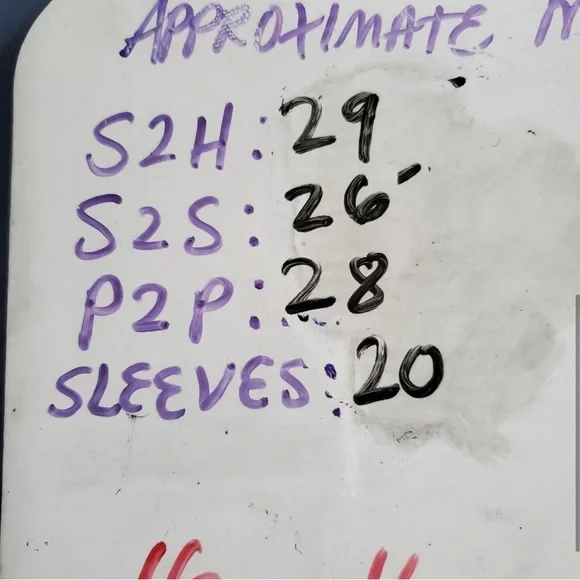 APPROXIMATE
S2H: 29
S2S: 26
P2P: 28
SLEEVES: 20